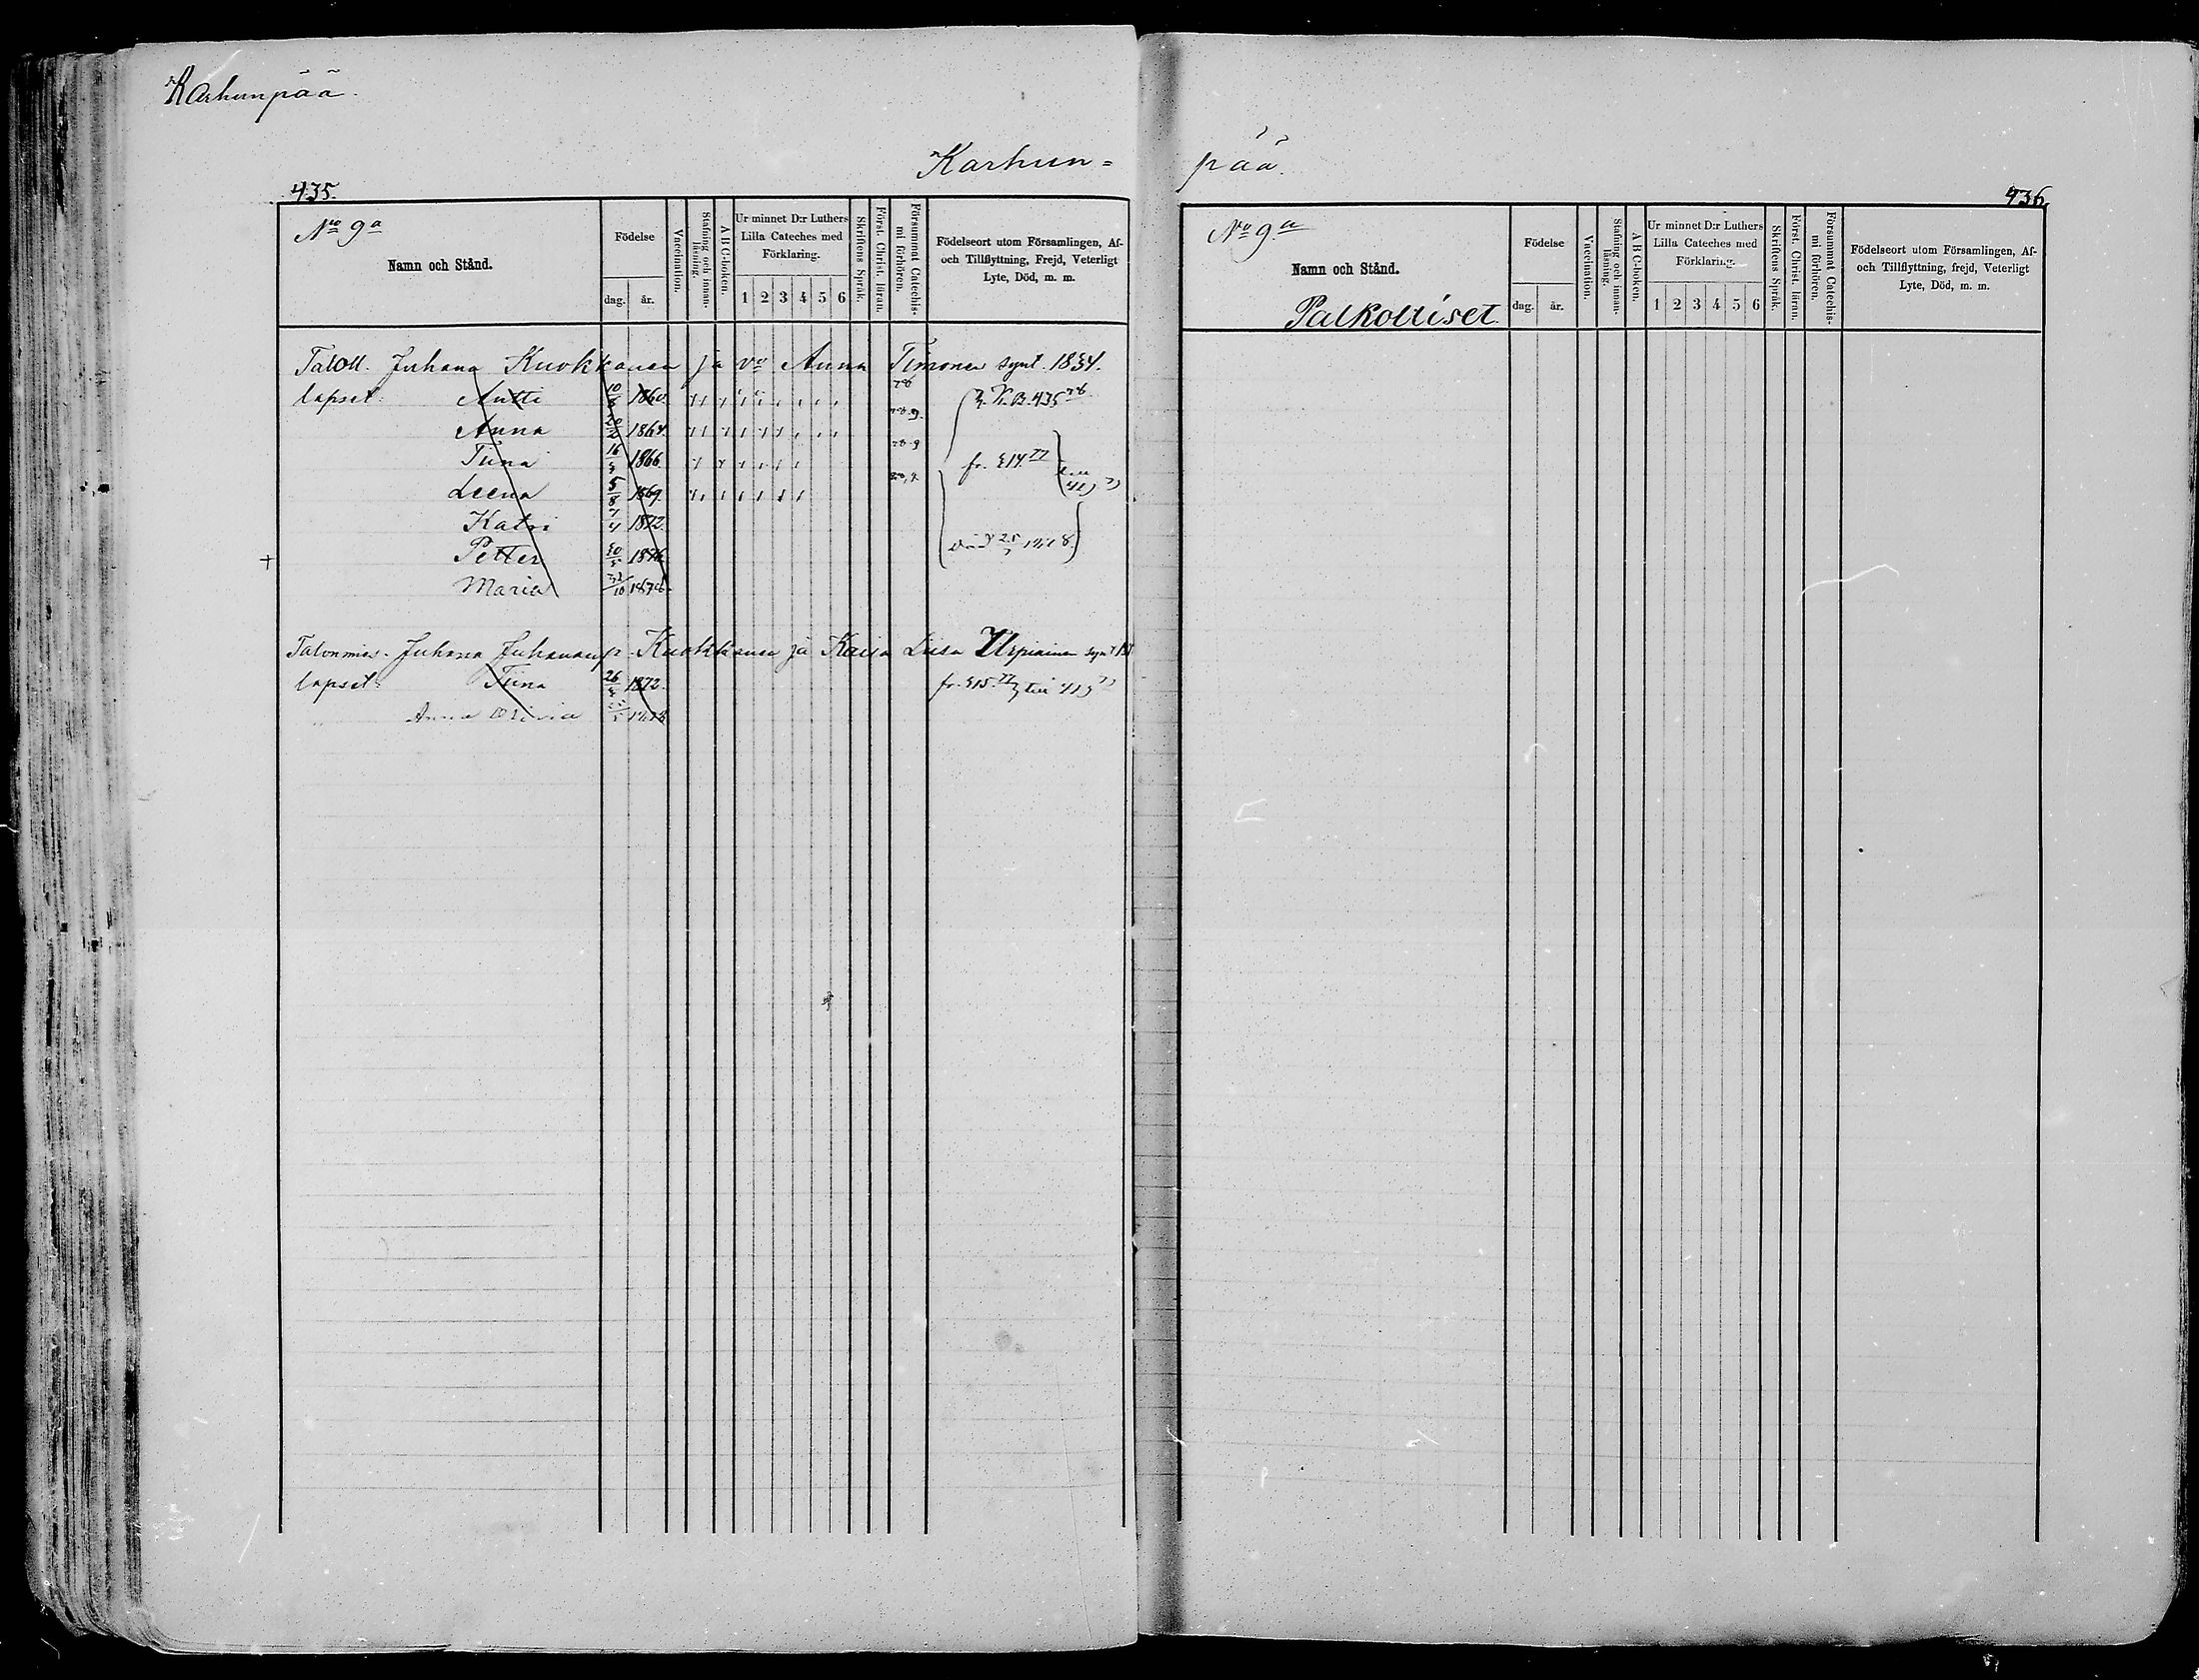 Karhunpää.
Karhun=
435.
No 9a
Namn och Stånd.
Födelse
dag. år.
Vaccination.
Stafning och innan-
läsning.
A B C-boken.
Ur minnet D:r Luthers
Lilla Cateches med
Förklaring.
1 2 3 4 5 6
Skriftens Språk.
Först. Christ. läran.
Försummat Catechis-
mi förhören.
Födelseort utom Församlingen, Af-
och Tillflyttning, Frejd, Veterligt
Lyte, Död, m. m.
Taloll. Juhana Kuokkanen ja vo Anna Timonen synt. 1834.
lapset: Antti 10/8 1860. 78
Anna 20/2 1864. 78.9.
Tiina 16/4 1866. 78.9 fr. 414.77
Leena 5/8 1869.
Katri 7/4 1872.
+ Petter 30/5 1876
Maria 1878
Talonmies. Juhana Juhananp. Kuokkanen ja Kaisa Liisa Urpiainen synt
lapset: Tiina 26/4 1872. fr. 415.77
Anna 1878
pää.
436.
No 9a
Namn och Stånd.
Palkolliset.
Födelse
dag. år.
Vaccination.
Stafning och innan-
läsning.
A B C-boken.
Ur minnet D:r Luthers
Lilla Cateches med
Förklaring.
1 2 3 4 5 6
Skriftens Språk.
Först. Christ. läran.
Försummat Catechis-
mi förhören.
Födelseort utom Församlingen, Af-
och Tillflyttning, frejd, Veterligt
Lyte, Död, m. m.